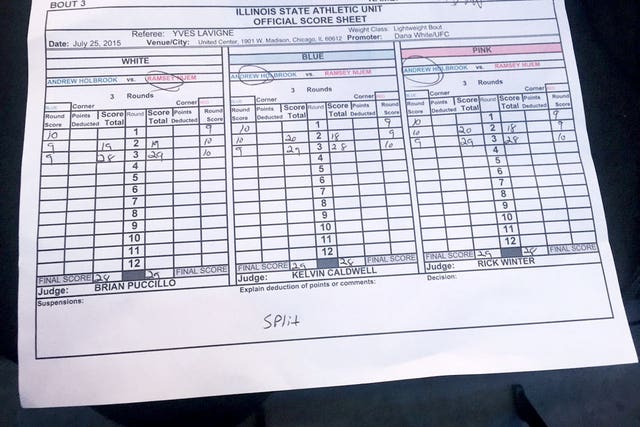 BOUT 3
ILLINOIS STATE ATHLETIC UNIT
OFFICIAL SCORE SHEET
Referee: YVES LAVIGNE Weight Class: Lightweight Bout
Date: July 25, 2015 Venue/City: United Center, 1901 W. Madison, Chicago, IL 60612 Promoter: Dana White/UFC
WHITE
ANDREW HOLBROOK vs. RAMSEY NIJEM
3 Rounds
BLUE Corner Corner RED
Round Score Points Deducted Score Total Round Score Total Points Deducted Round Score
10 1 9
9 19 2 19 10
9 28 3 29 10
4
5
6
7
8
9
10
11
12
FINAL SCORE 28 29 FINAL SCORE
Judge: BRIAN PUCCILLO
BLUE
ANDREW HOLBROOK vs. RAMSEY NIJEM
3 Rounds
BLUE Corner Corner RED
Round Score Points Deducted Score Total Round Score Total Points Deducted Round Score
10 1 9
10 20 2 18 9
9 29 3 28 10
4
5
6
7
8
9
10
11
12
FINAL SCORE 29 28 FINAL SCORE
Judge: KELVIN CALDWELL
PINK
ANDREW HOLBROOK vs. RAMSEY NIJEM
3 Rounds
BLUE Corner Corner RED
Round Score Points Deducted Score Total Round Score Total Points Deducted Round Score
10 1 9
10 20 2 18 9
9 29 3 28 10
4
5
6
7
8
9
10
11
12
FINAL SCORE 29 28 FINAL SCORE
Judge: RICK WINTER
Suspensions: Explain deduction of points or comments: Decision:
SPlit